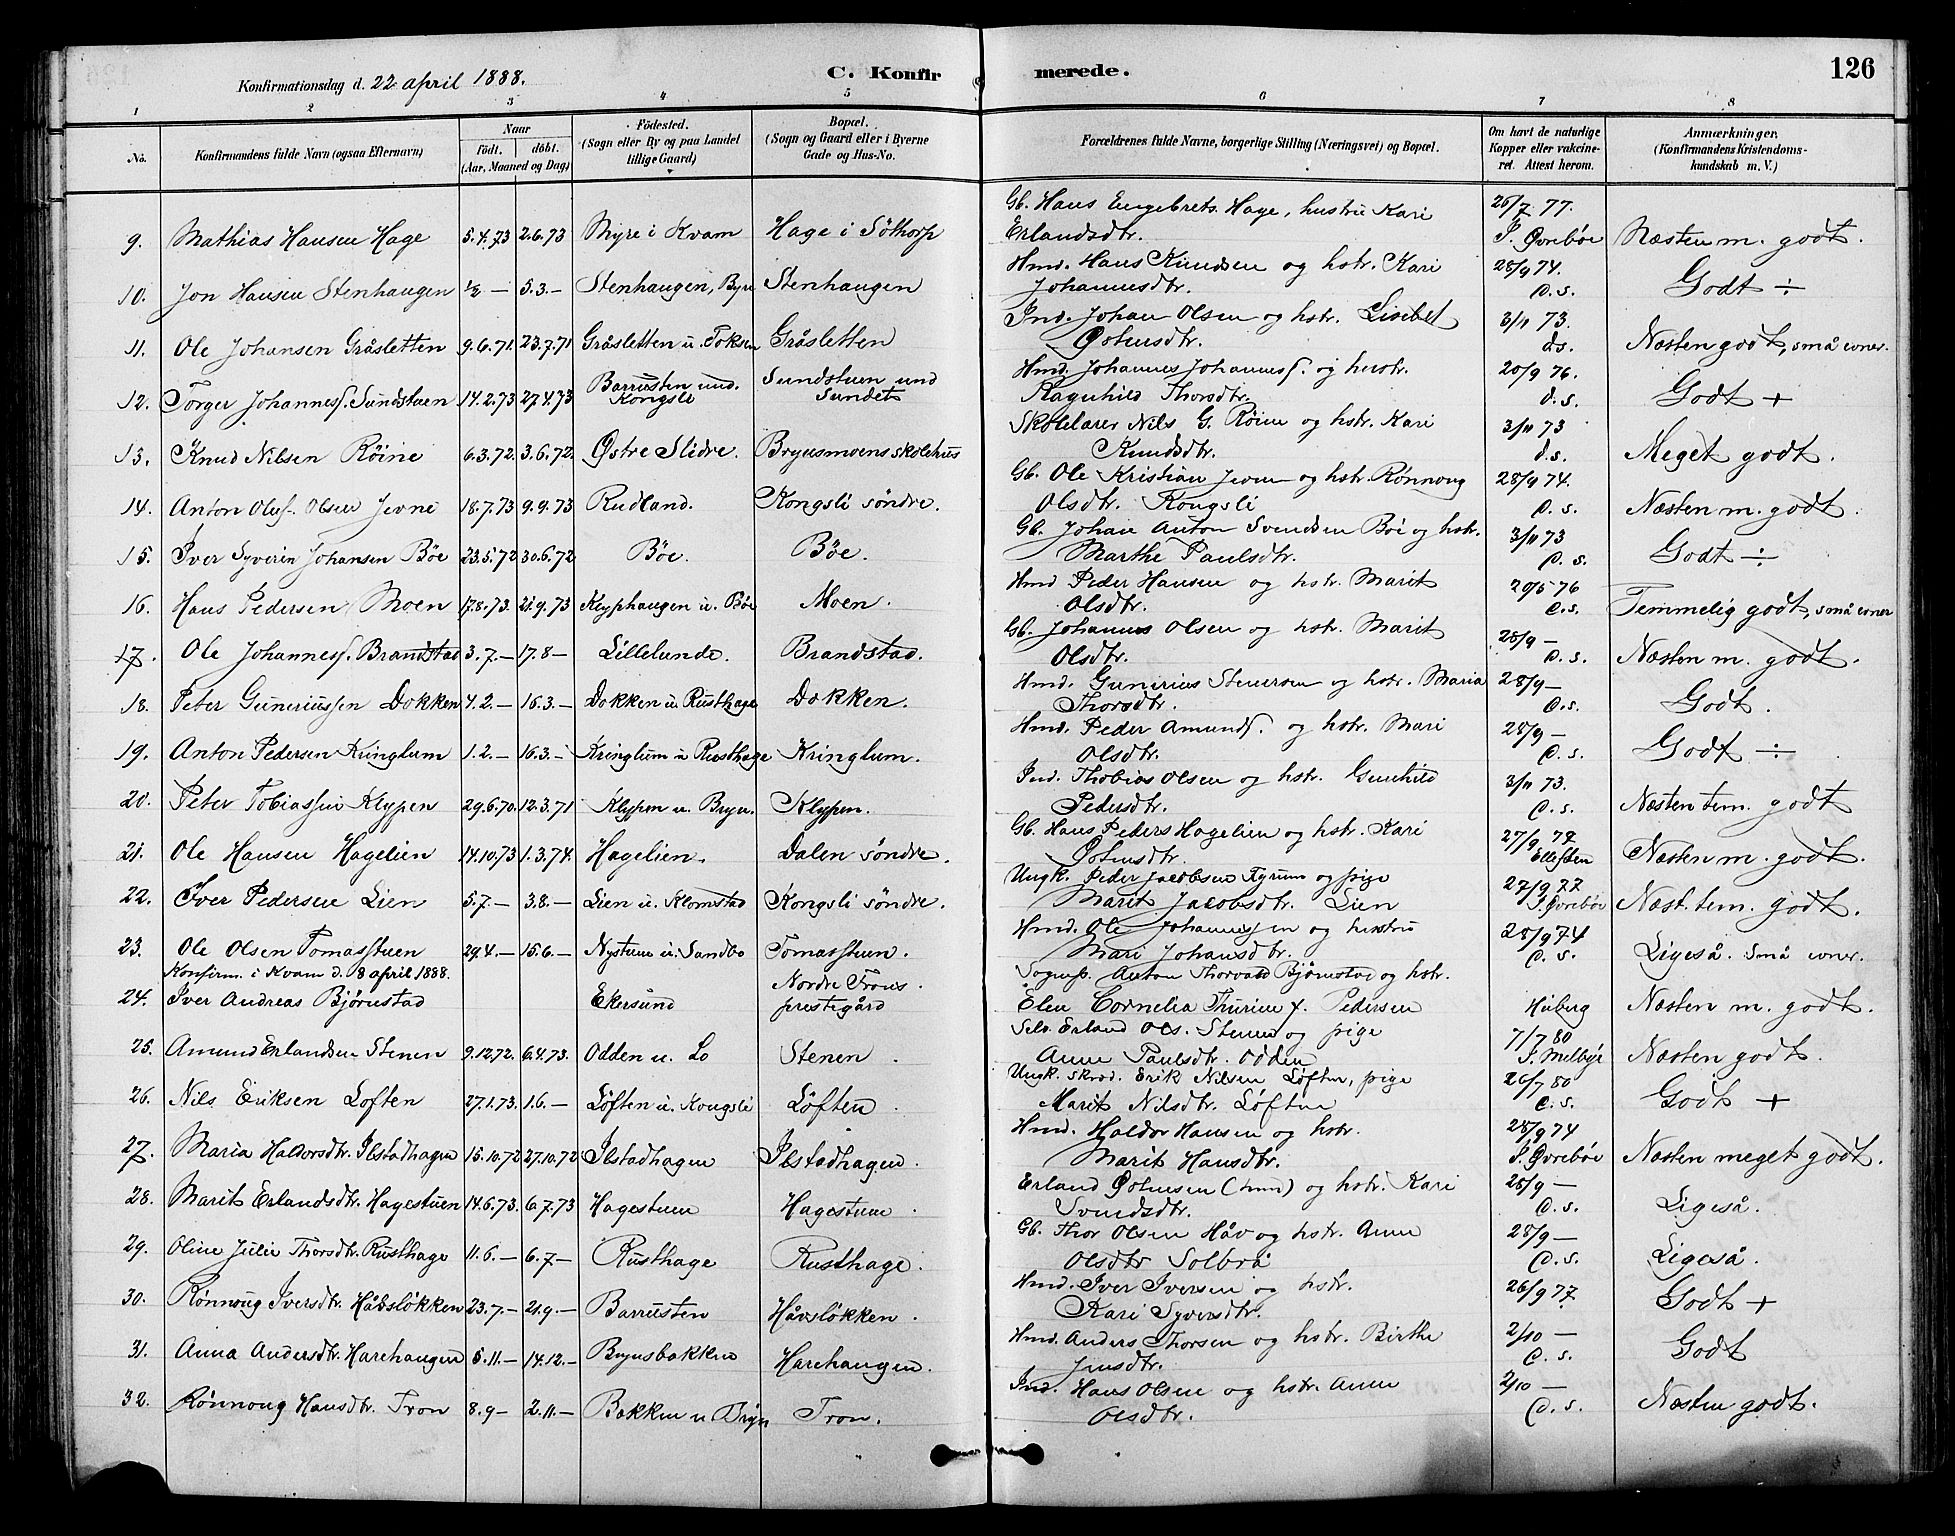 126
Konfirmationsdag d. 22 april 1888. C. Konfirmerede.
1 2 3 4 5 6 7 8
No. Konfirmandens fulde Navn (ogsaa Efternavn) Naar Födt. döbt. (Aar, Maaned og Dag) Födested. (Sogn eller By og paa Landet tillige Gaard) Bopæl. (Sogn og Gaard eller i Byerne Gade og Hus-No. Forældrenes fulde Navne, borgerlige Stilling (Næringsvei) og Bopæl. Om havt de naturlige Kopper eller vakcineret. Attest herom. Anmærkninger. (Konfirmandens Kristendomskundskab m. V.)
9. Mathias Hansen Hage 5.4.73 2.6.73 Myre i Kvam Hage i Söthorp Gb. Hans Engebrets. Hage, hustru Kari Erlandsdtr. 26/7.77. J. Øvrebøe Næsten m. godt.
10. Jon Hansen Stenhaugen 1/2 — 5.3.— Stenhaugen, Bryn Stenhaugen Hmd. Hans Knudsen og hstr. Kari Johannesdtr. 28/9 74. d. s. Godt ÷
11. Ole Johansen Gråsletten 9.6.71. 23.7.71 Gråsletten u. Toksen Gråsletten Ind. Johan Olsen og hstr. Lisebet Østensdtr. 3/11 73. ds. Næsten godt, små evner.
12. Torger Johanness. Sundstuen 14.2.73 27.4.73 Barrusten und. Kongsli Sundstuen und Sundet Hmd. Johannes Johanness. og hustr. Ragnhild Thorsdtr. 20/9 76. d. s. Godt +
13. Knud Nilsen Röine 6.3.72. 3.6.72. Østre Slidre. Brynsmoens skolehus Skolelærer Nils G. Röine og hstr. Kari Knudsdtr. 3/11 73 d. s. Meget godt.
14. Anton Oluf Olsen Jevne 18.7.73 9.9.73 Rudland. Kongsli søndre. Gb. Ole Kristian Jevne og hstr. Rønnoug Olsdtr. Kongsli 28/9 74. d. s. Næsten m. godt.
15. Iver Syverin Johansen Bøe 23.5.72 30.6.72 Bøe. Bøe. Gb. Johan Anton Svendsen Bøe og hstr. Marthe Paulsdtr. 3/11 73 d. s. Godt ÷
16. Hans Pedersen Moen 17.8.73. 21.9.73 Klyphaugen u. Bøe Moen. Hmd Peder Hansen og hstr. Marit Olsdtr. 29/5 76 d. s. Temmelig godt, små evner
17. Ole Johanness. Brandstad 3.7.— 17.8— Lillelunde. Brandstad. Gb. Johannes Olsen og hstr. Marit Olsdtr. 28/9 — d. s. Næsten m. godt.
18. Peter Guneriussen Dokken 4.2.— 16.3.— Dokken u. Rusthage Dokken. Hmd. Gunerius Stenersen og hstr. Maria Thorsdtr. 28/9— d. s. Godt.
19. Anton Pedersen Kringlum 1.2.— 16.3.— Kringlum u Rusthage Kringlum. Hmd. Peder Amunds. og hstr. Mari Olsdtr. 28/9— d. s. Godt ÷
20. Peter Tobiassen Klypen 29.6.70. 12.3.71 Klypen u. Bryn. Klypen. Ind. Thobias Olsen og hstr. Gunhild Pedersdtr. 3/11 73. d. s. Næsten tem. godt
21. Ole Hansen Hagelien 14.10.73 1.3.74. Hagelien. Dalen søndre. Gb. Hans Peders Hagelien og hstr. Kari Østensdtr. 27/9 74. Næsten m. godt.
22. Iver Pedersen Lien 5.7— 3.8.— Lien u. Klomstad Kongsli søndre. Ungk. Peder Jacobsen og pige Marit Jacobsdtr. Lien 27/9 77 J. Øvrebøe Næst. tem. godt.
23. Ole Olsen Tomasstuen 29.4.— 15.6.— Nystuen u. Sandbo Tomasstuen. Hmd. Ole Johannessen og hustru Mari Johansdtr. 28/9 74 d. s. Ligeså. Små evner.
Konfirm. i Kvam d. 8 april 1888.
24. Iver Andreas Bjørnstad Ekersund Nordre Frons prestegård Sognep. Anton Thorvald Bjørnstad og hstr. Elen Cornelia Thurine f. Pedersen Huberg Næsten m. godt.
25. Amund Erlandsen Stenen 9.12.72. 6.4.73. Odden u. Lo Stenen. Selv. Erland Ols. Stenen og pige Anne Paulsdtr. Odden 7/7 80 J. Melbye Næsten godt.
26. Nils Eriksen Løften 27.1.73. 1.6.— Løften u. Kongsli Løften. Ungk. skræd. Erik Nilsen Løften, pige Marit Nilsdtr. Løften 26/7 80 d. s. Godt +
27. Maria Haldorsdtr. Ilstadhagen 15.10.72 27.10.72 Ilstadhagen Ilstadhagen. Hmd. Haldor Hansen og hstr. Marit Hansdtr. 28/9 74 J. Øvrebøe Næsten meget godt.
28. Marit Erlandsdtr. Hagestuen 14.6.73. 6.7.73 Hagestuen Hagestuen. Erland Østensen (hmd) og hstr. Kari Svendsdtr. 28/9 — d. s. Ligeså.
29. Oline Julie Thorsdtr. Rusthage 11.6.— 6.7— Rusthage Rusthage. Gb. Thor Olsen Håv og hstr. Anne Olsdtr Solbrå 28/9— d. s. Ligeså.
30. Rønnoug Iversdtr. Håvsløkken 23.7.— 21.9.— Barrusten Håvsløkken. Hmd. Iver Iversen og hstr. Kari Syversdtr. 26/9 77 d. s. Godt +
31. Anna Andersdtr. Harehaugen 5.11.— 14.12.— Brynsbakken Harehaugen. Hmd. Anders Thorsen og hstr. Birthe Jensdtr. 2/10 — d. s. Godt
32. Rønnoug Hansdtr. Tron 8.9— 2.11.— Bakken u Bryn Tron. Ind. Hans Olsen og hstr. Anne Olsdtr. 2/10 — d. s. Næsten godt.